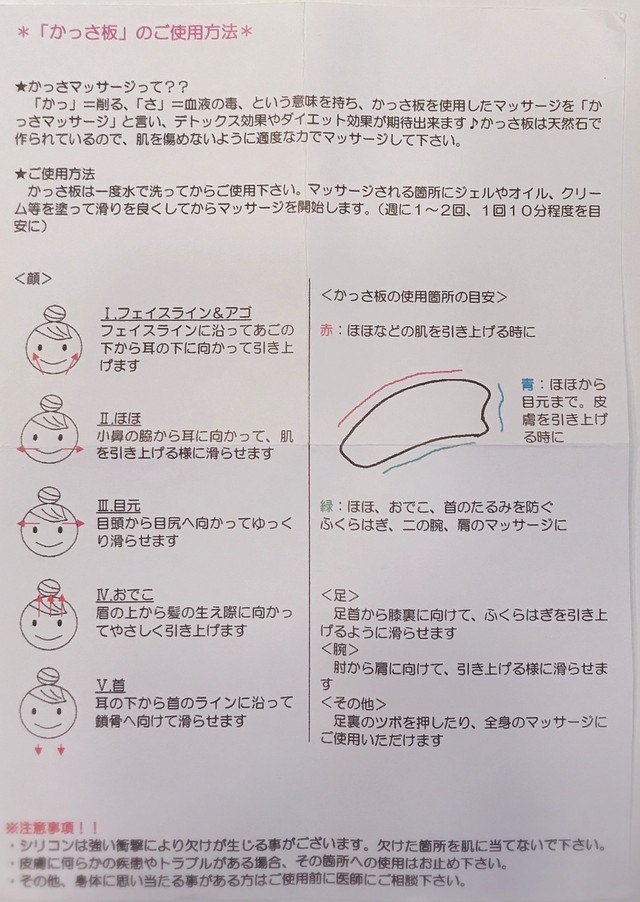 ＊「かっさ板」のご使用方法＊
★かっさマッサージって？？
「かっ」＝削る、「さ」＝血液の毒、という意味を持ち、かっさ板を使用したマッサージを「か
っさマッサージ」と言い、デトックス効果やダイエット効果が期待出来ます♪かっさ板は天然石で
作られているので、肌を傷めないように適度な力でマッサージして下さい。
★ご使用方法
かっさ板は一度水で洗ってからご使用下さい。マッサージされる箇所にジェルやオイル、クリー
ム等を塗って滑りを良くしてからマッサージを開始します。（週に１～２回、１回１０分程度を目
安に）
＜顔＞
Ⅰ.フェイスライン＆アゴ
フェイスラインに沿ってあごの
下から耳の下に向かって引き上
げます
Ⅱ.ほほ
小鼻の脇から耳に向かって、肌
を引き上げる様に滑らせます
Ⅲ.目元
目頭から目尻へ向かってゆっく
り滑らせます
Ⅳ.おでこ
眉の上から髪の生え際に向かっ
てやさしく引き上げます
Ⅴ.首
耳の下から首のラインに沿って
鎖骨へ向けて滑らせます
＜かっさ板の使用箇所の目安＞
赤：ほほなどの肌を引き上げる時に
青：ほほから
目元まで。皮
膚を引き上げ
る時に
緑：ほほ、おでこ、首のたるみを防ぐ
ふくらはぎ、二の腕、肩のマッサージに
＜足＞
足首から膝裏に向けて、ふくらはぎを引き上
げるように滑らせます
＜腕＞
肘から肩に向けて、引き上げる様に滑らせま
す
＜その他＞
足裏のツボを押したり、全身のマッサージに
ご使用いただけます
※注意事項！！
・シリコンは強い衝撃により欠けが生じる事がございます。欠けた箇所を肌に当てないで下さい。
・皮膚に何らかの疾患やトラブルがある場合、その箇所への使用はお止め下さい。
・その他、身体に思い当たる事がある方はご使用前に医師にご相談下さい。